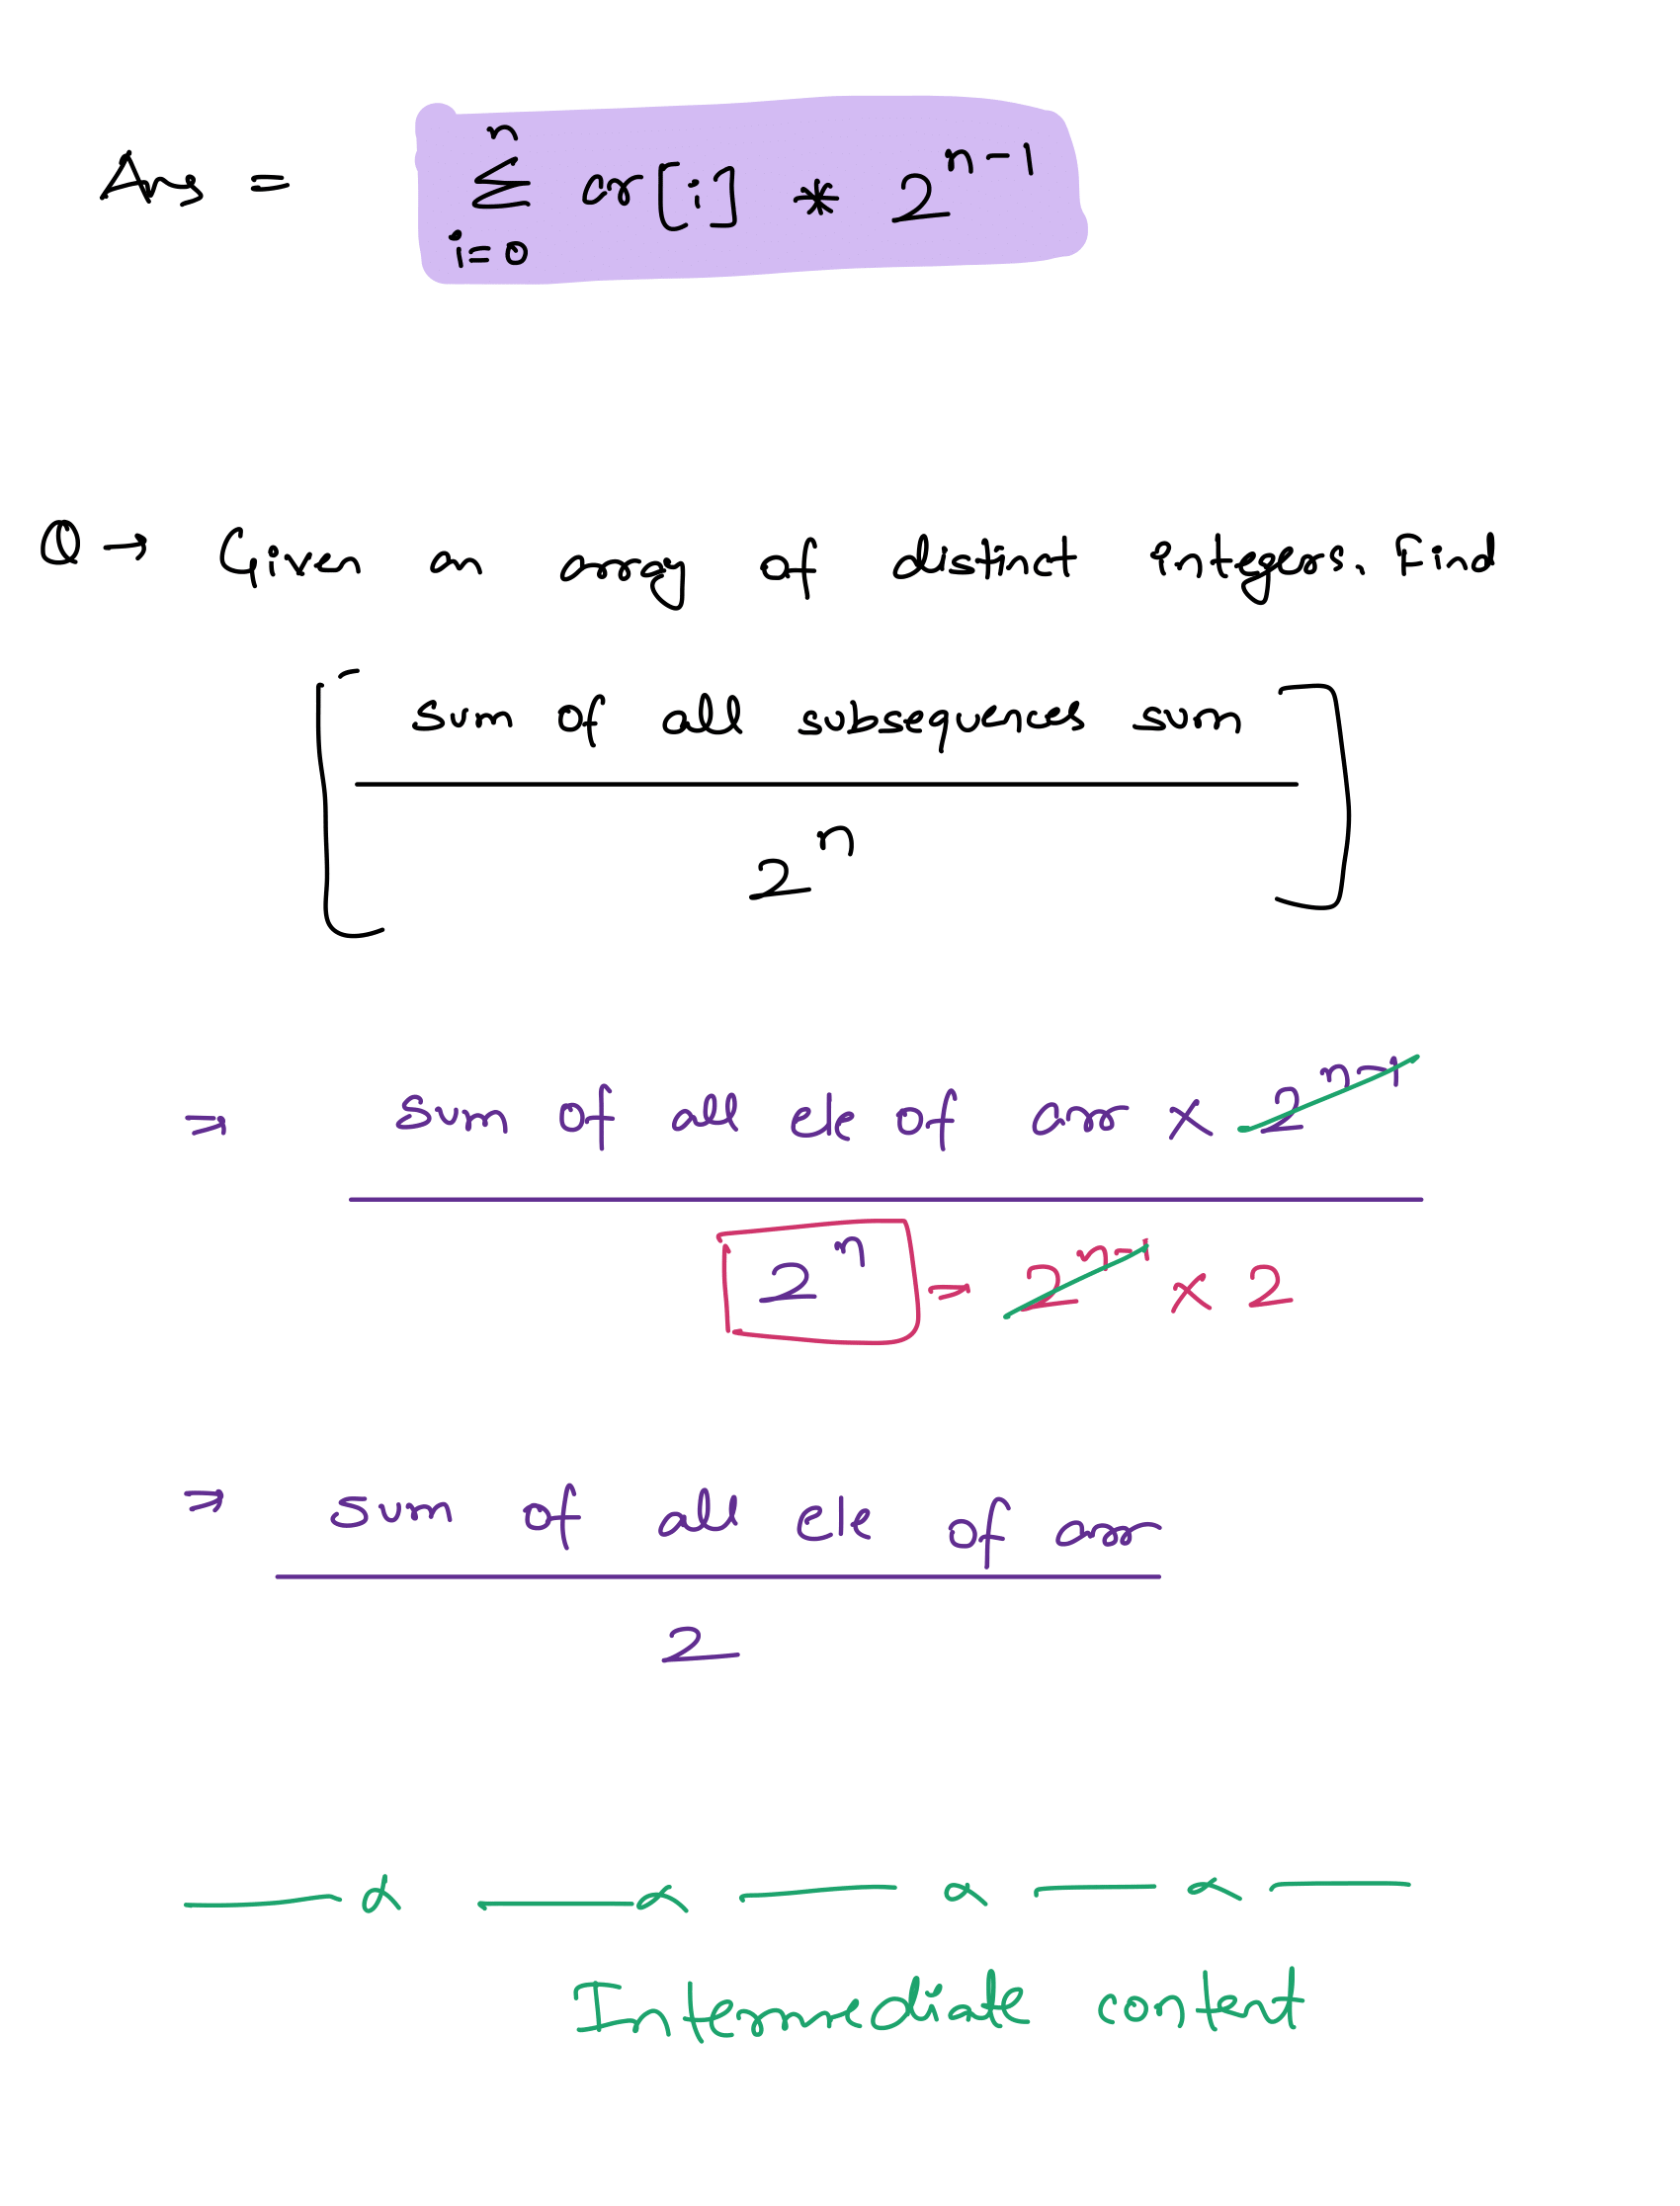 Ans = n Σ i=0 ar[i] * 2^n-1
Q → Given an array of distinct integers. Find
[ sum of all subsequences sum ]
2^n
⇒ sum of all ele of arr × 2^n-1
2^n = 2^n-1 × 2
⇒ sum of all ele of arr
2
Intermediate content